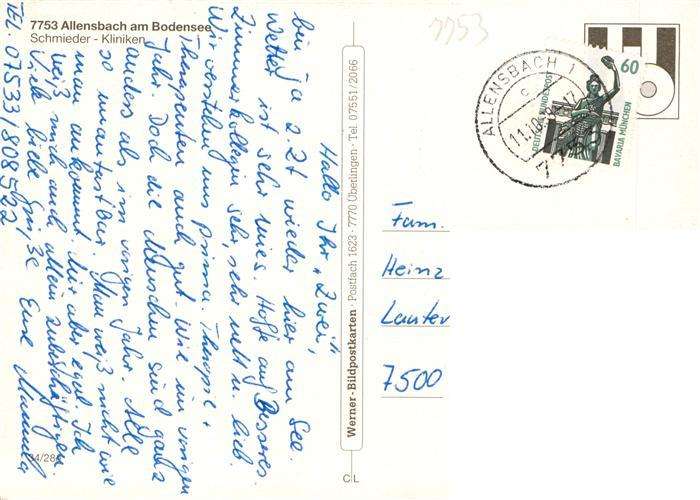 7753 Allensbach am Bodensee
Schmieder - Kliniken
7753
Hallo Ihr "Zwei",
bin ja z. Zt wieder hier am See.
Wetter ist sehr mies. Hoffe auf Besseres.
Zimmerkollegin sehr, sehr nett u. lieb.
Wir verstehen uns prima. Therapie +
Therapeuten auch gut. Wie im vorigen
Jahr. Doch die Menschen sind ganz
anders als im vorigen Jahr. Alle
so unnahbar. Man weiß nicht wie
man ankommt. Mir aber egal. Ich
weiß mich auch allein zu beschäftigen.
Viele liebe Grüße Eure
TEL: 07533/808522
34/28
Werner-Bildpostkarten · Postfach 1623 · 7770 Überlingen · Tel. 07551/2066
CL
ALLENSBACH 1
7753
DEUTSCHE BUNDESPOST
60
BAVARIA MÜNCHEN
Fam.
Heinz
Lauter
7500